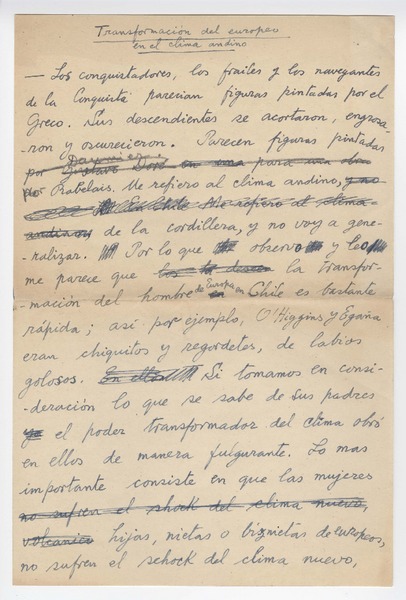 Transformación del europeo
en el clima andino
— Los conquistadores, los frailes y los navegantes
de la Conquista parecían figuras pintadas por el
Greco. Sus descendientes se acortaron, engrosa-
ron y oscurecieron. Parecen figuras pintadas
Daumier
por Gustavo Doré en una para una obra
de Rabelais. Me refiero al clima andino, y no
En Chile Me refiero al clima
andino y de la cordillera, y no voy a gene-
ralizar. Por lo que observo y leo
me parece que los la transfor-
mación del hombre de Europa en Chile es bastante
rápida; así por ejemplo, O'Higgins y Egaña
eran chiquitos y regordetes, de labios
golosos. En ellos Si tomamos en consi-
deración lo que se sabe de sus padres
ya el poder transformador del clima obró
en ellos de manera fulgurante. Lo mas
importante consiste en que las mujeres
no sufren el shock del clima nuevo,
volcanico hijas, nietas o biznietas de europeos,
no sufren el schock del clima nuevo,